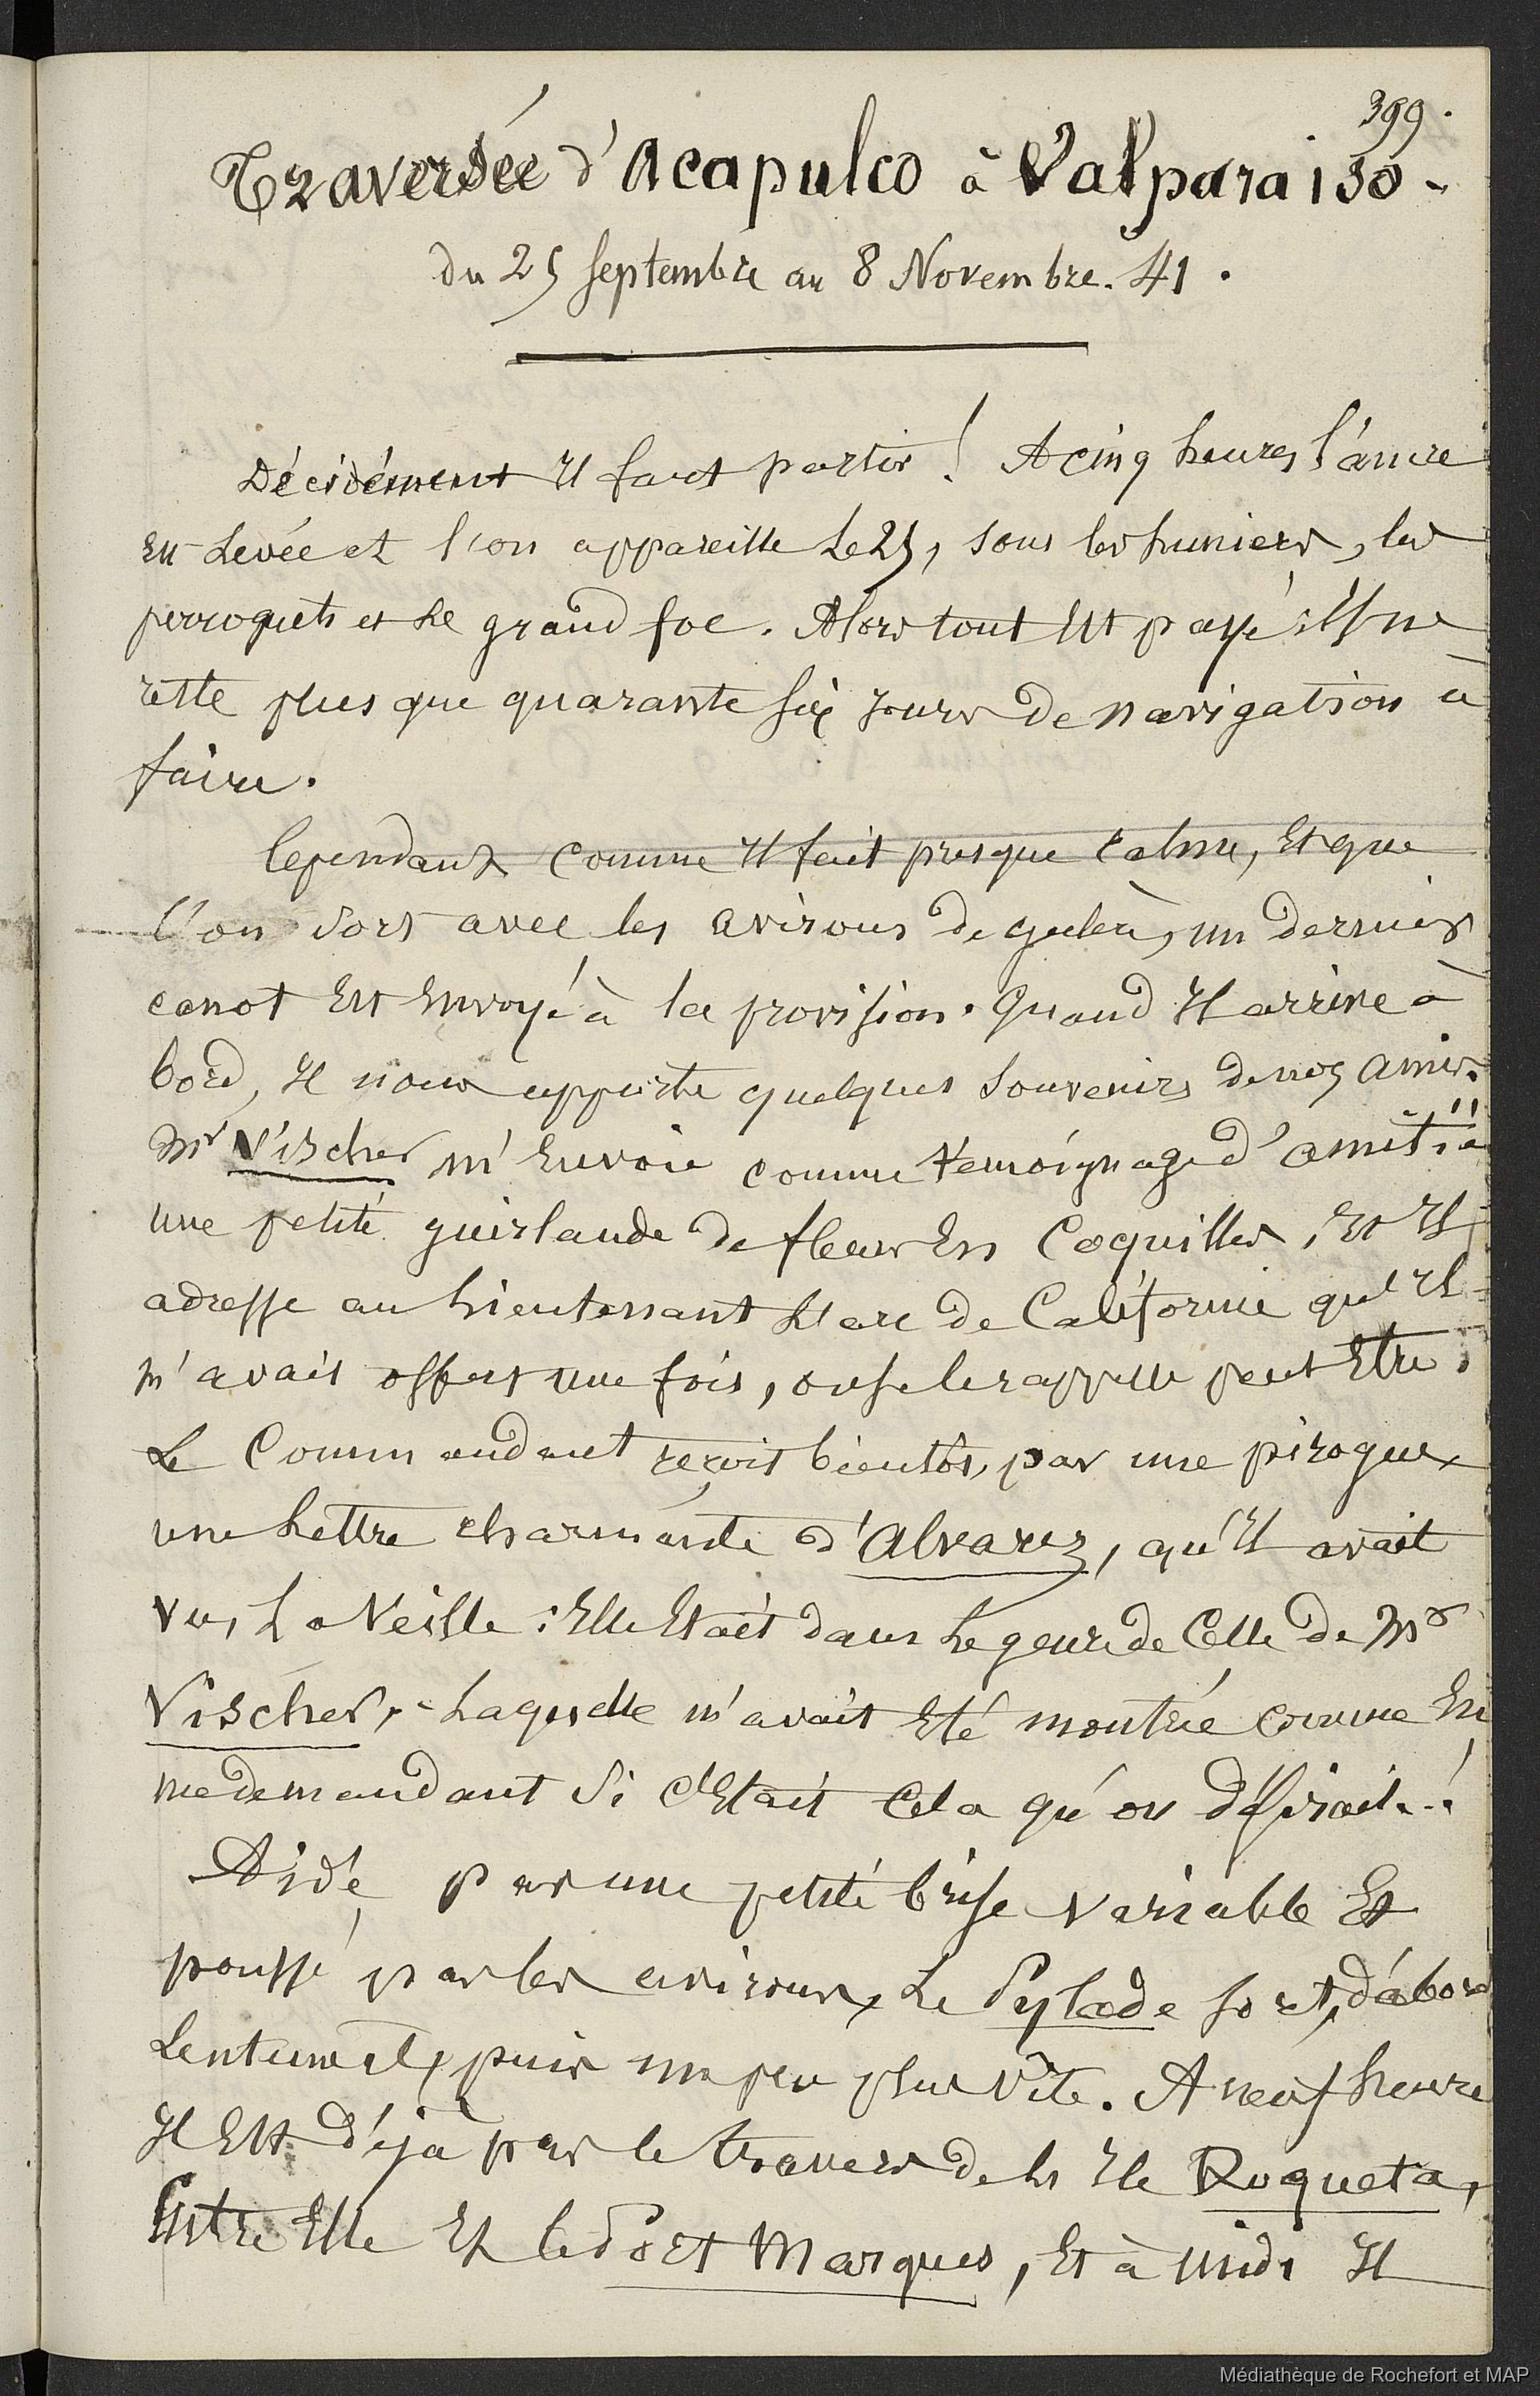 399.
Traversée d'Acapulco à Valparaiso.
du 25 septembre au 8 Novembre. 41.
Décidément Il faut partir ! A cinq heures l'ancre
est Levée et l'on appareille Le 25, sous les huniers, les
perroquets et Le grand foc. Alors tout Est payé : Il ne
reste plus que quarante six jours de navigation à
faire.
Cependant comme Il fait presque calme, Et que
l'on sort avec les avirons de galère, un dernier
canot Est Envoyé à la provision. Quand Il arrive à
bord, Il nous apporte quelques souvenirs de nos amis.
Mr Vischer m'Envoie comme témoignage d'amitié
une petite guirlande de fleurs En Coquilles, Et Il
adresse au Lieutenant L'arc de Californie qu'Il
m'avait offert une fois, on se le rappelle peut Etre.
Le Commandant reçoit bientôt, par une pirogue,
une Lettre charmante d'Alvarez, qu'Il avait
vu, La Veille : Elle Etait dans Le genre de Celle de Mr
Vischer, - Laquelle m'avait Eté montrée comme En
me demandant Si C'Etait Cela qu'on désirait..!
Aidé par une petite brise variable Et
poussé par les avirons, Le Pylade sort, d'abord
Lentement, puis un peu plus vite. A neuf heures
Il Est déjà par le travers de la Ile Roqueta,
Entre Elle Et le Port Marques, Et à midi Il
Médiathèque de Rochefort et MAP